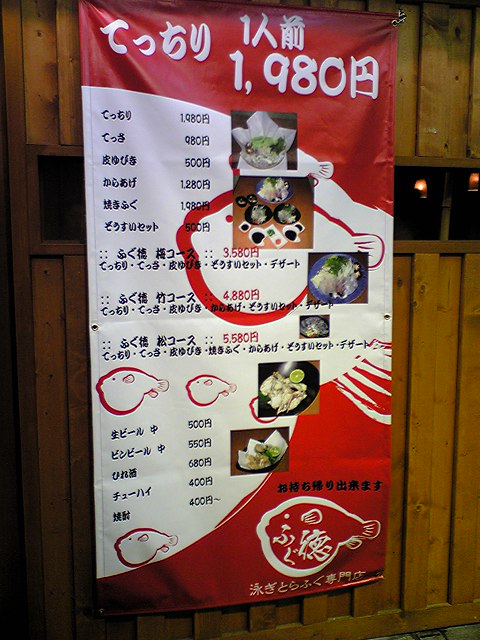 てっちり 1人前
1,980円
てっちり 1,980円
てっさ 980円
皮ゆびき 500円
からあげ 1,280円
焼きふぐ 1,980円
ぞうすいセット 500円
:: ふぐ徳 桜コース :: 3,580円
てっちり・てっさ・皮ゆびき・ぞうすいセット・デザート
:: ふぐ徳 竹コース :: 4,880円
てっちり・てっさ・皮ゆびき・からあげ・ぞうすいセット・デザート
:: ふぐ徳 松コース :: 5,580円
てっちり・てっさ・皮ゆびき・焼きふぐ・からあげ・ぞうすいセット・デザート
生ビール 中 500円
ビンビール 中 550円
ひれ酒 680円
チューハイ 400円
焼酎 400円～
お持ち帰り出来ます
ふぐ徳
泳ぎとらふぐ専門店